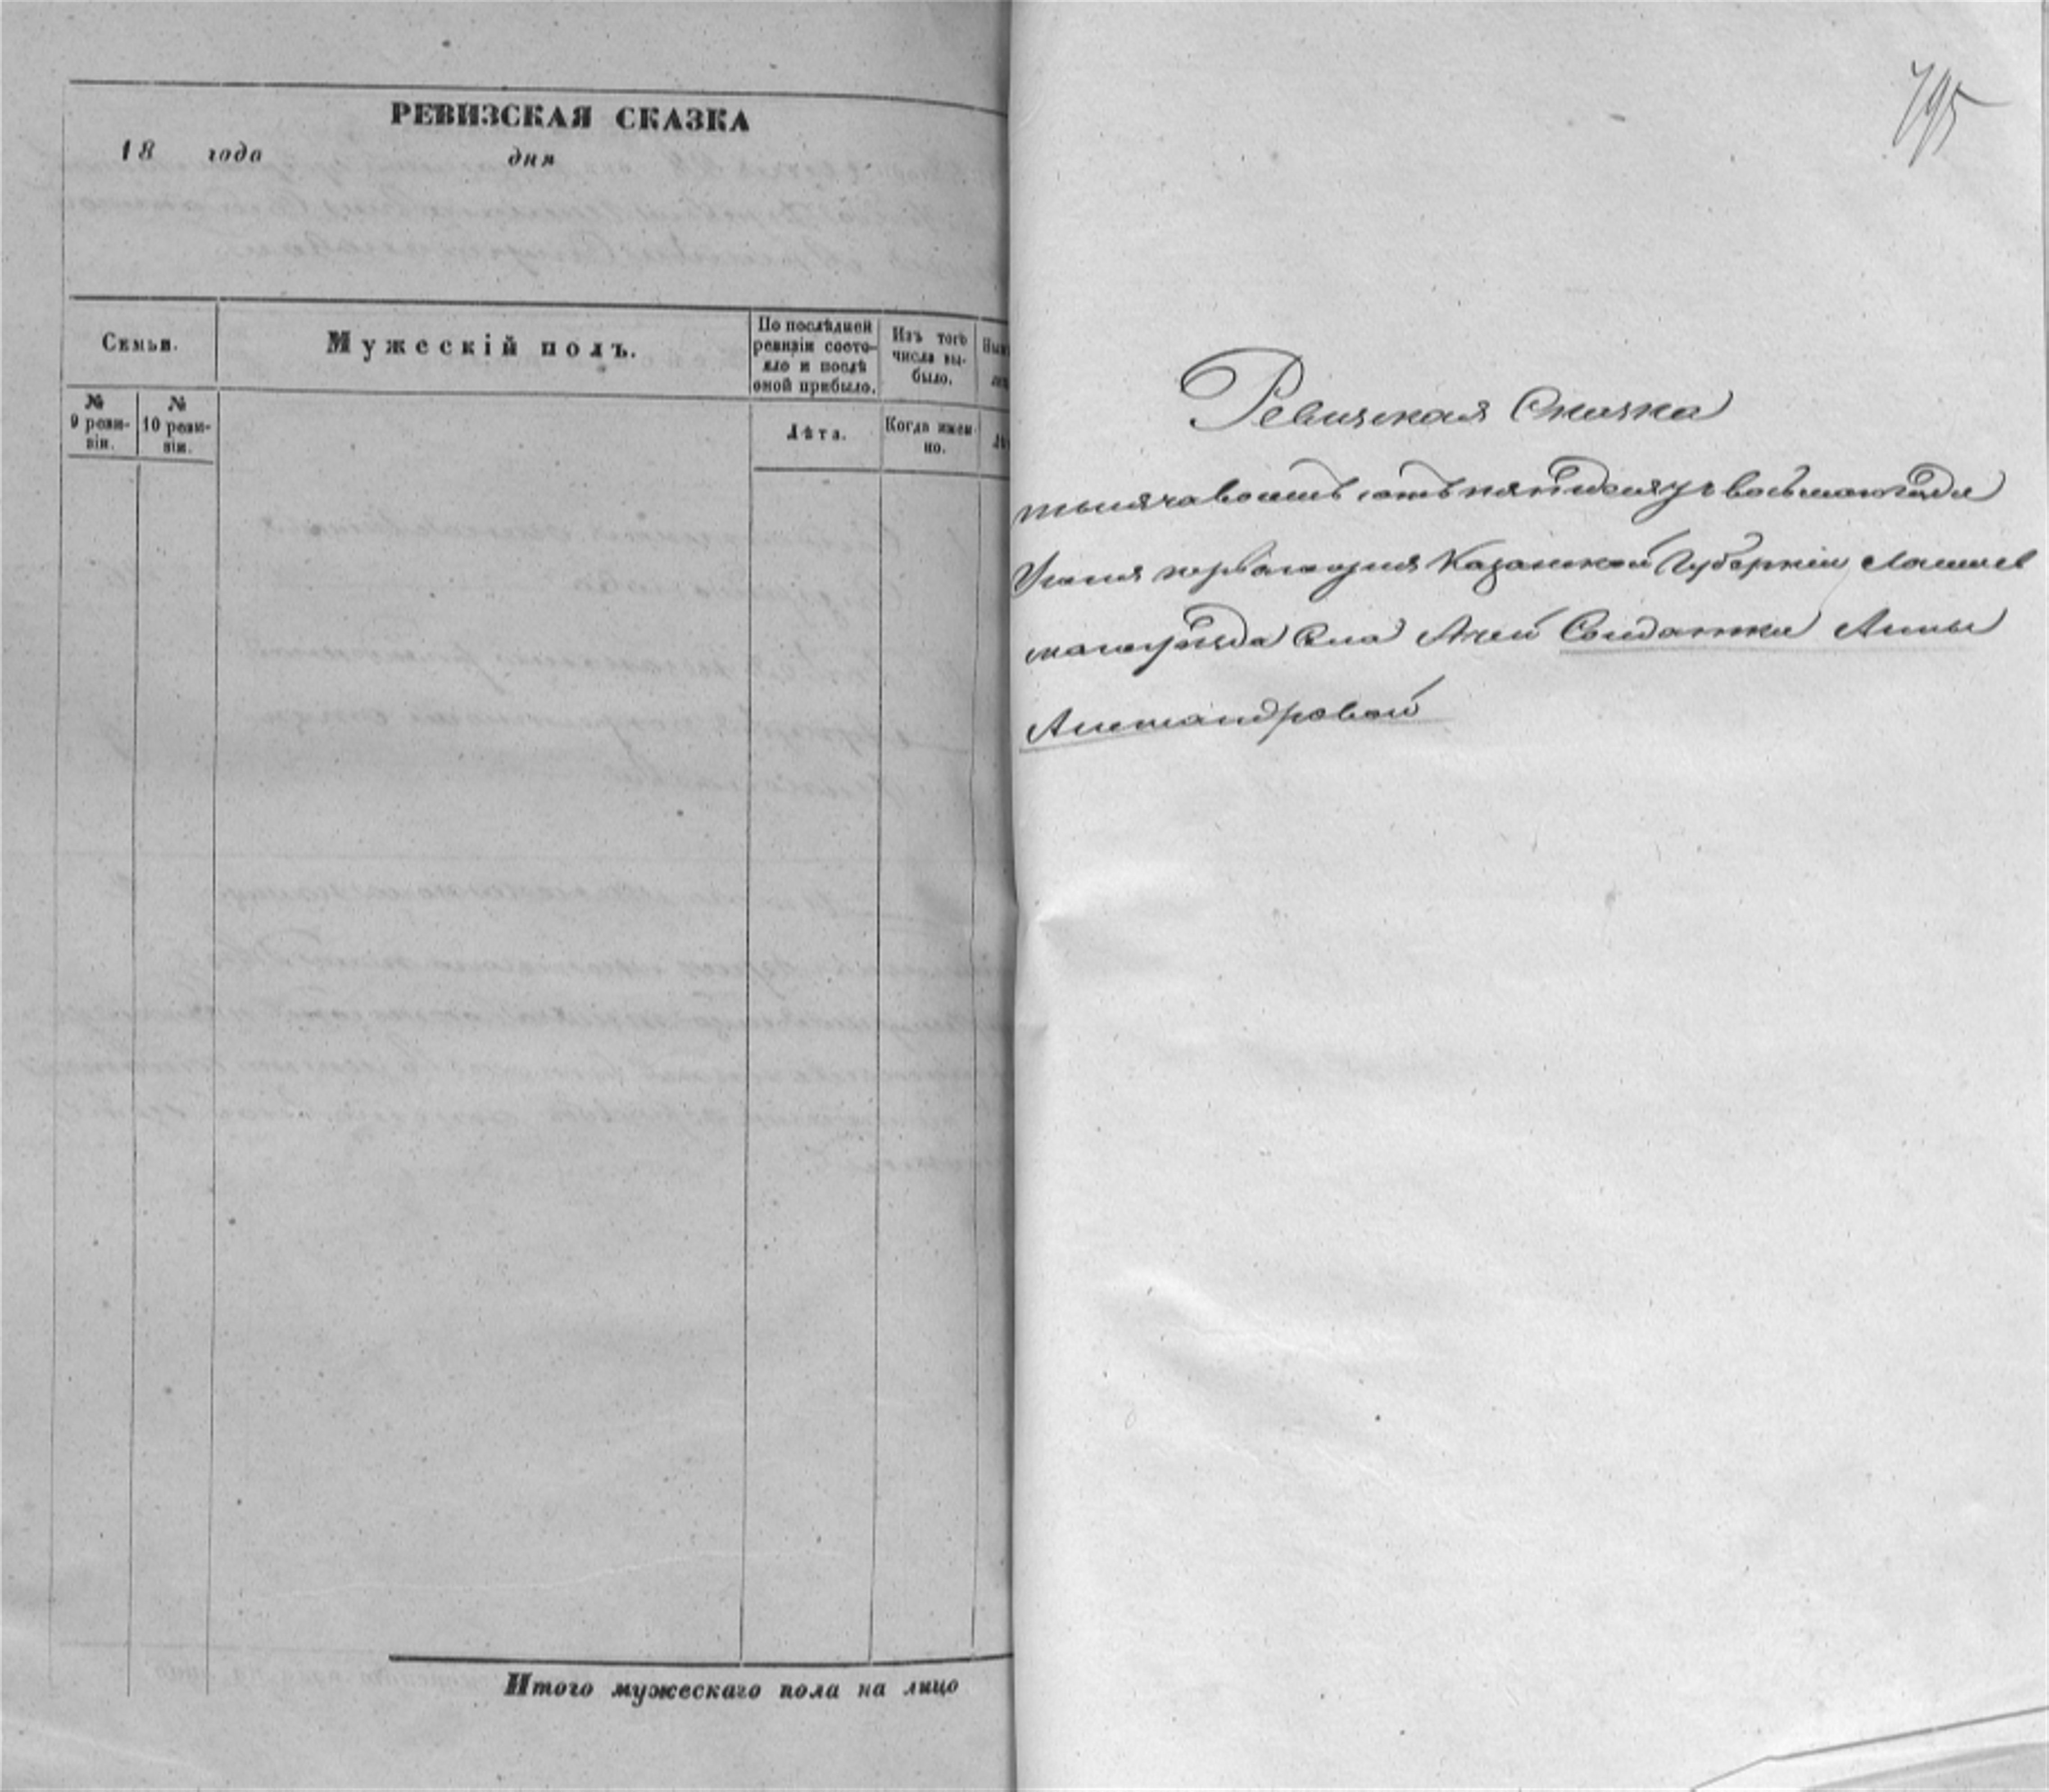 РЕВИЗСКАЯ СКАЗКА
18 года дня
Семьи.
Мужескій полъ.
По послѣдней ревизіи состо-
яло и послѣ оной прибыло.
Изъ того числа вы-
было.
№ 9 реви-
зіи.
№ 10 реви-
зіи.
Лѣта.
Когда имен-
но.
Итого мужескаго пола на лицо
795
Ревизская Сказка
тысяча восемь сотъ пятьдесятъ восьмаго года
Іюня перваго дня Казанской Губерніи Лаишев
скаго уѣзда Села Ачей Солдатки Анны
Александровой